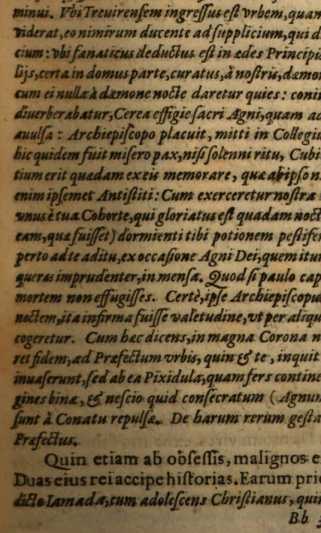 minui. Vbi Treuirensem ingressus est vrbem, quam
viderat, eo nimirum ducente ad supplicium, qui d
cium: vbi fanaticus deductus est in ædes Principis
lijs, certa in domus parte, curatus, à nostris, dæmo
cum ei nulla à dæmone nocte daretur quies: conin
diuerberabatur, Cerea effigie sacri Agni, quam ad
auulsa: Archiepiscopo placuit, mitti in Collegiu
hic quidem fuit misero pax, nisi solenni ritu, Cubi
tium erit quædam ex eis memorare, quæ ab ipso n
enim ipsemet Antistiti: Cum exerceretur nostra
vnus è tua Cohorte, qui gloriatus est quadam nocte
eam, quæ fuisset) dormienti tibi potionem pestife
perto ad te aditu, ex occasione Agni Dei, quem itu
queras imprudenter, in mensa. Quod si paulo cap
mortem non effugisses. Certè, ipse Archiepiscopu
noctem, ita infirma fuisse valetudine, vt per aliqu
cogeretur. Cum hæc dicens, in magna Corona n
res fidem, ad Præfectum vrbis, quin & te, inquit
inuaserunt, sed ab ea Pixidula, quam fers contine
gines binæ, & nescio quid consecratum (Agnum
sunt à Conatu repulsæ. De harum rerum gesta
Præfectus.
Quin etiam ab obsessis, malignos e
Duas eius rei accipe historias. Earum prio
dicto Iamada, cum adolescens Christianus, qui
Bb